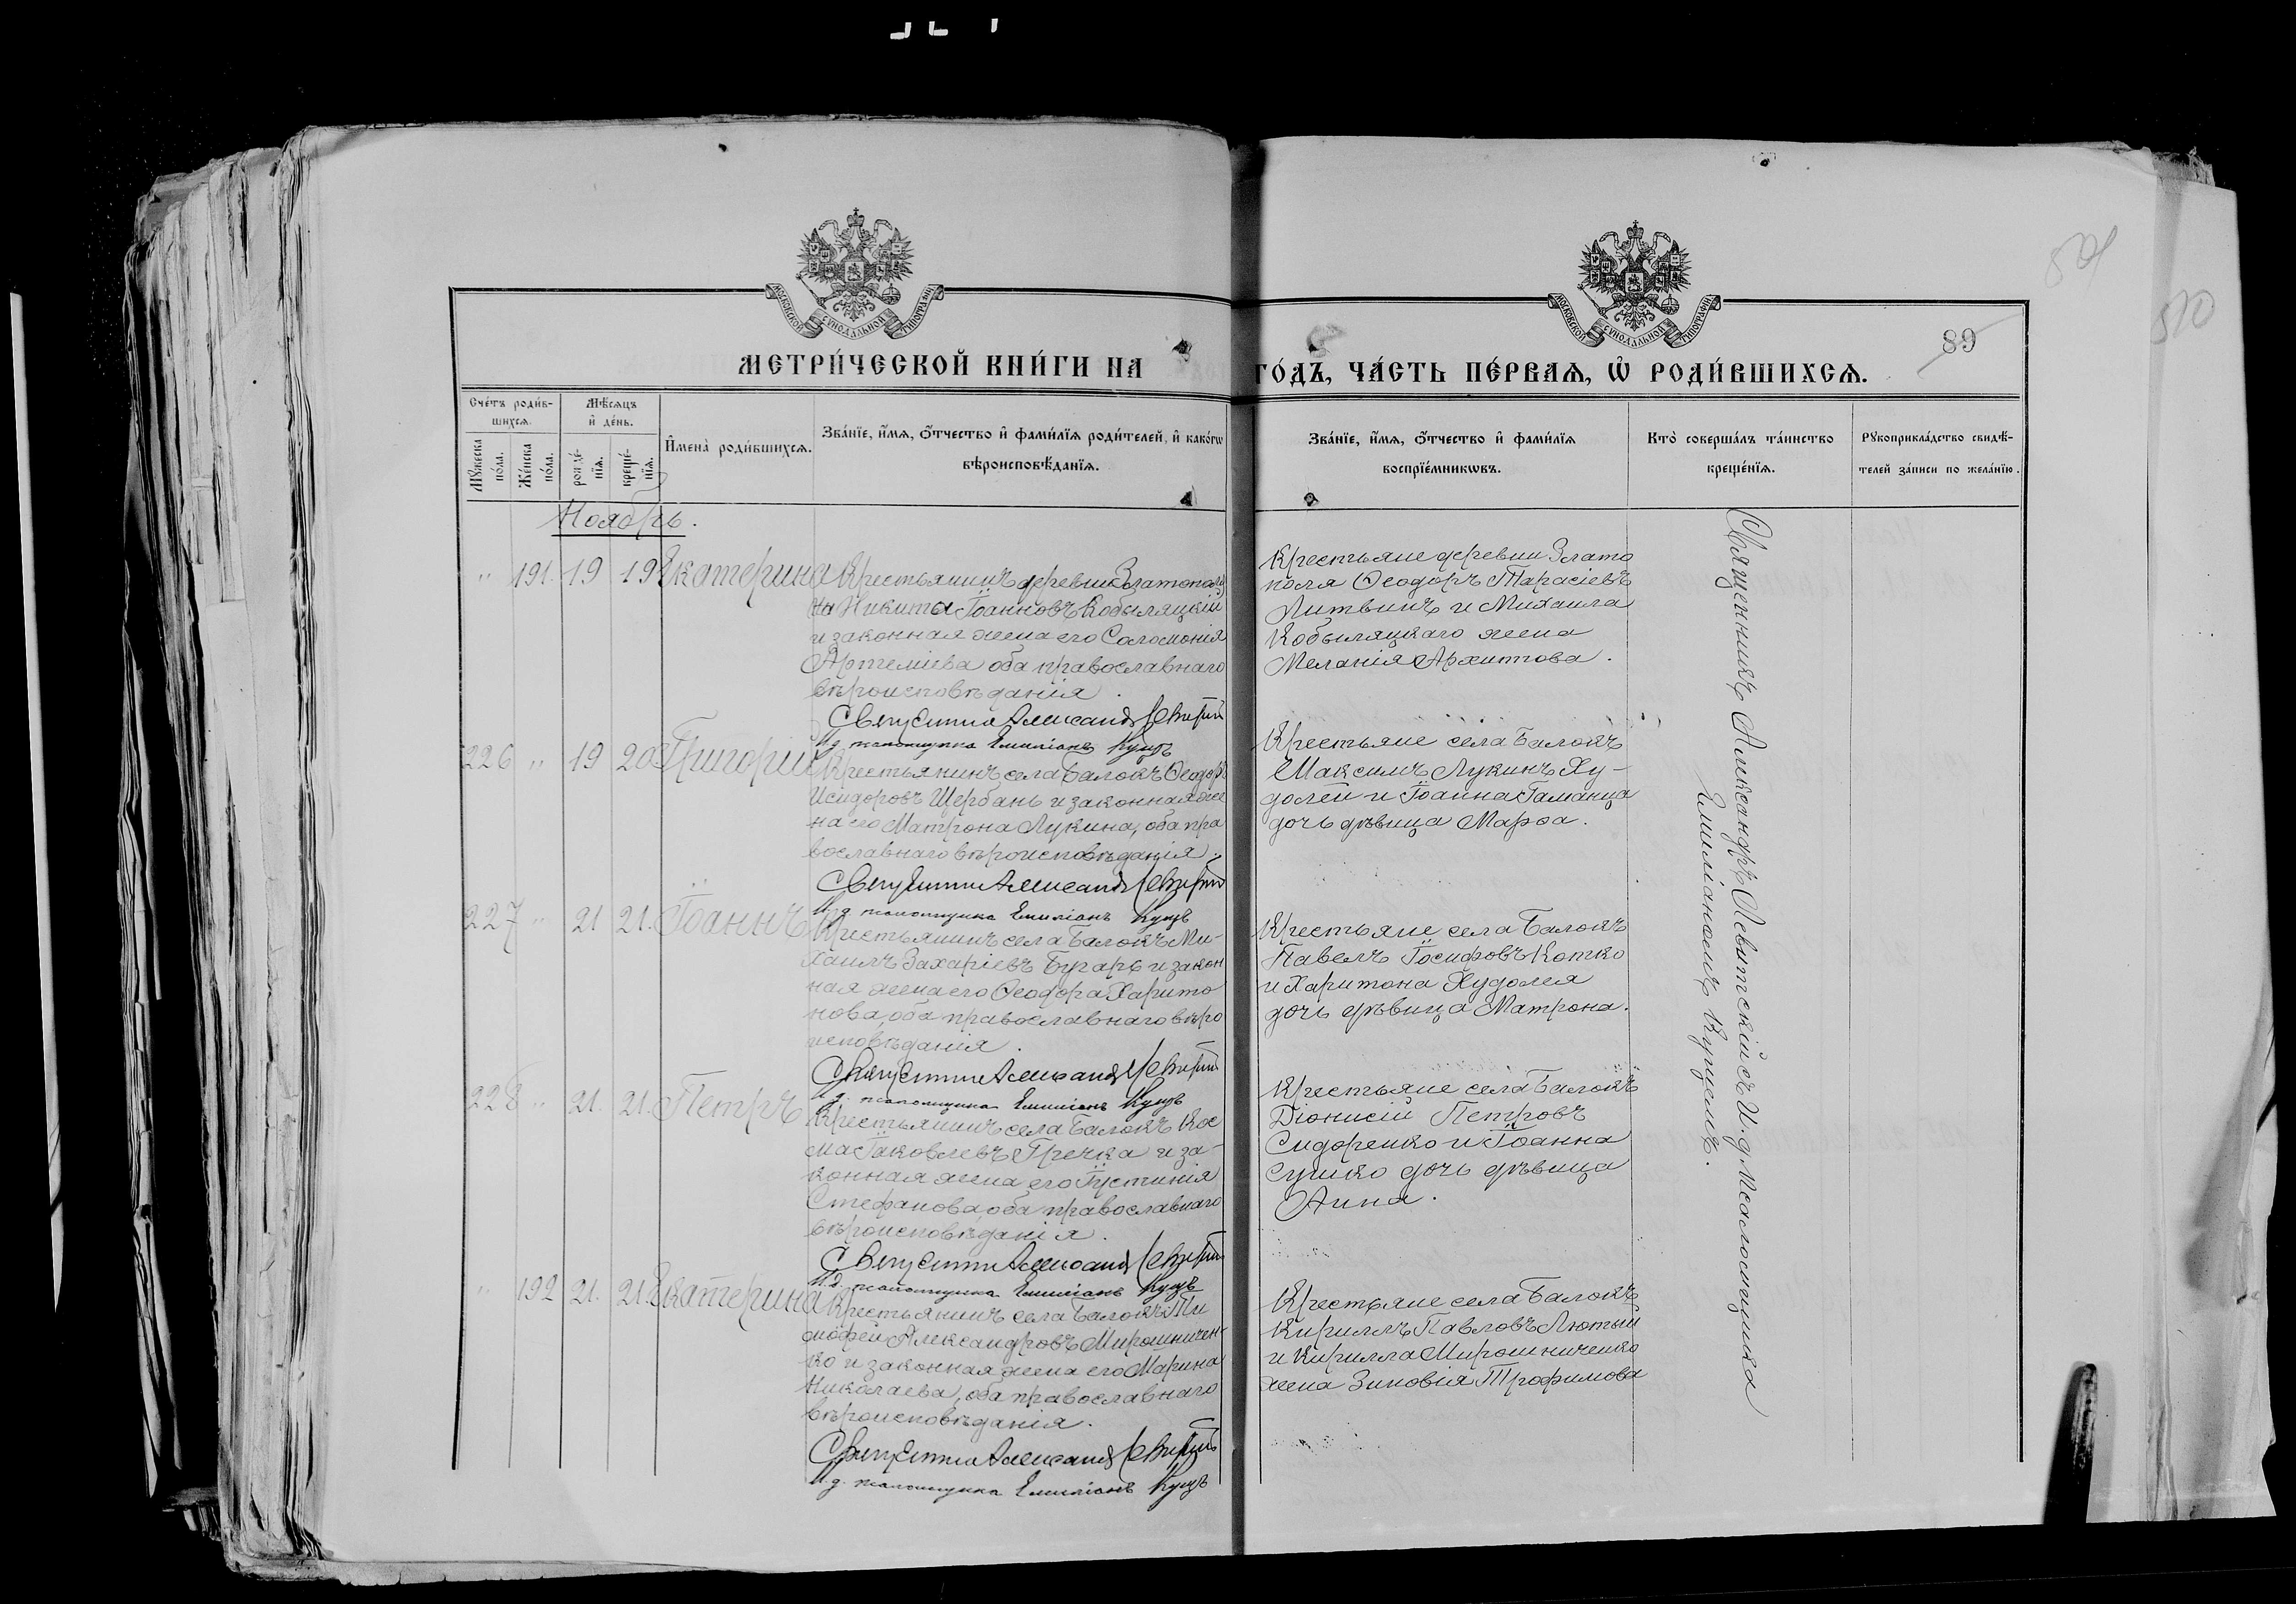 509
510
МОСКОВСКОЙ СѴНОДАЛЬНОЙ ТИПОГРАФІИ
МОСКОВСКОЙ СѴНОДАЛЬНОЙ ТИПОГРАФІИ
89
МЕТРИ́ЧЕСКОЙ КНИ́ГИ НА ГО́ДЪ, ЧА́СТЬ ПЕ́РВАѦ, Ѽ РОДИ́ВШИХСѦ.
Сче́тъ роди́в-
шихсѧ.
Мꙋ́жеска
по́ла.
Же́нска
по́ла.
Мѣ́сѧцъ
и҆ де́нь.
рожде́-
нїѧ.
креще́-
нїѧ.
И҆мена̀ роди́вшихсѧ.
Зва́нїе, и҆́мѧ, ѻ҆́тчество и҆ фами́лїѧ роди́телей, и҆ како́гѡ
вѣроисповѣ́данїѧ.
Зва́нїе, и҆́мѧ, ѻ҆́тчество и҆ фами́лїѧ
воспрїе́мникѡвъ.
Кто̀ соверша́лъ та́инство
креще́нїѧ.
Рꙋкоприкла́дство свидѣ́-
телей за́писи по жела́нїю.
Ноябрь.
" 191. 19 19 Екатерина
Крестьянинъ деревни Златополя
Никита Іоанновъ Кобыляцкій
и законная жена его Соломонія
Артеміева оба православнаго
вѣроисповѣданія.
Священникъ Александръ Левитскій
И. д. псаломщика Емиліанъ Куцъ
Крестьяне деревни Злато
поля Ѳеодоръ Тарасіевъ
Литвинъ и Михаила
Кобыляцкаго жена
Меланія Архипова.
226 " 19 20 Григорій
Крестьянинъ села Балокъ Ѳеодоръ
Исидоровъ Щербань и законная же
на его Матрона Лукина, оба пра
вославнаго вѣроисповѣданія.
Священникъ Александръ Левитскій
И. д. псаломщика Емиліанъ Куцъ
Крестьяне села Балокъ
Максимъ Лукинъ Ху-
долей и Іоанна Гаманца
дочь дѣвица Марѳа.
227 " 21 21. Іоаннъ
Крестьянинъ села Балокъ Ми-
хаилъ Захаріевъ Бугарь и закон
ная жена его Ѳеодора Харито
нова, оба православнаго вѣро
исповѣданія.
Священникъ Александръ Левитскій
И. д. псаломщика Емиліанъ Куцъ
Крестьяне села Балокъ
Павелъ Іосифовъ Котко
и Харитона Худолея
дочь дѣвица Матрона.
228 " 21. 21. Петръ
Крестьянинъ села Балокъ Кос
ма Іаковлевъ Гречка и за-
конная жена его Іустинія
Стефанова, оба православнаго
вѣроисповѣданія.
Священникъ Александръ Левитскій
И. д. псаломщика Емиліанъ Куцъ
Крестьяне села Балокъ
Діонисій Петровъ
Сидоренко и Іоанна
Сушко дочь дѣвица
Анна.
" 192 21. 21. Екатерина
Крестьянинъ села Балокъ Ти
моѳей Александровъ Мирошничен-
ко и законная жена его Марина
Николаева, оба православнаго
вѣроисповѣданія.
Священникъ Александръ Левитскій
И. д. псаломщика Емиліанъ Куцъ
Крестьяне села Балокъ
Кириллъ Павловъ Лютый
и Кирилла Мирошниченко
жена Зиновія Трофимова
Священникъ Александръ Левитскій съ И. д. Псаломщика
Емиліаномъ Куцемъ.